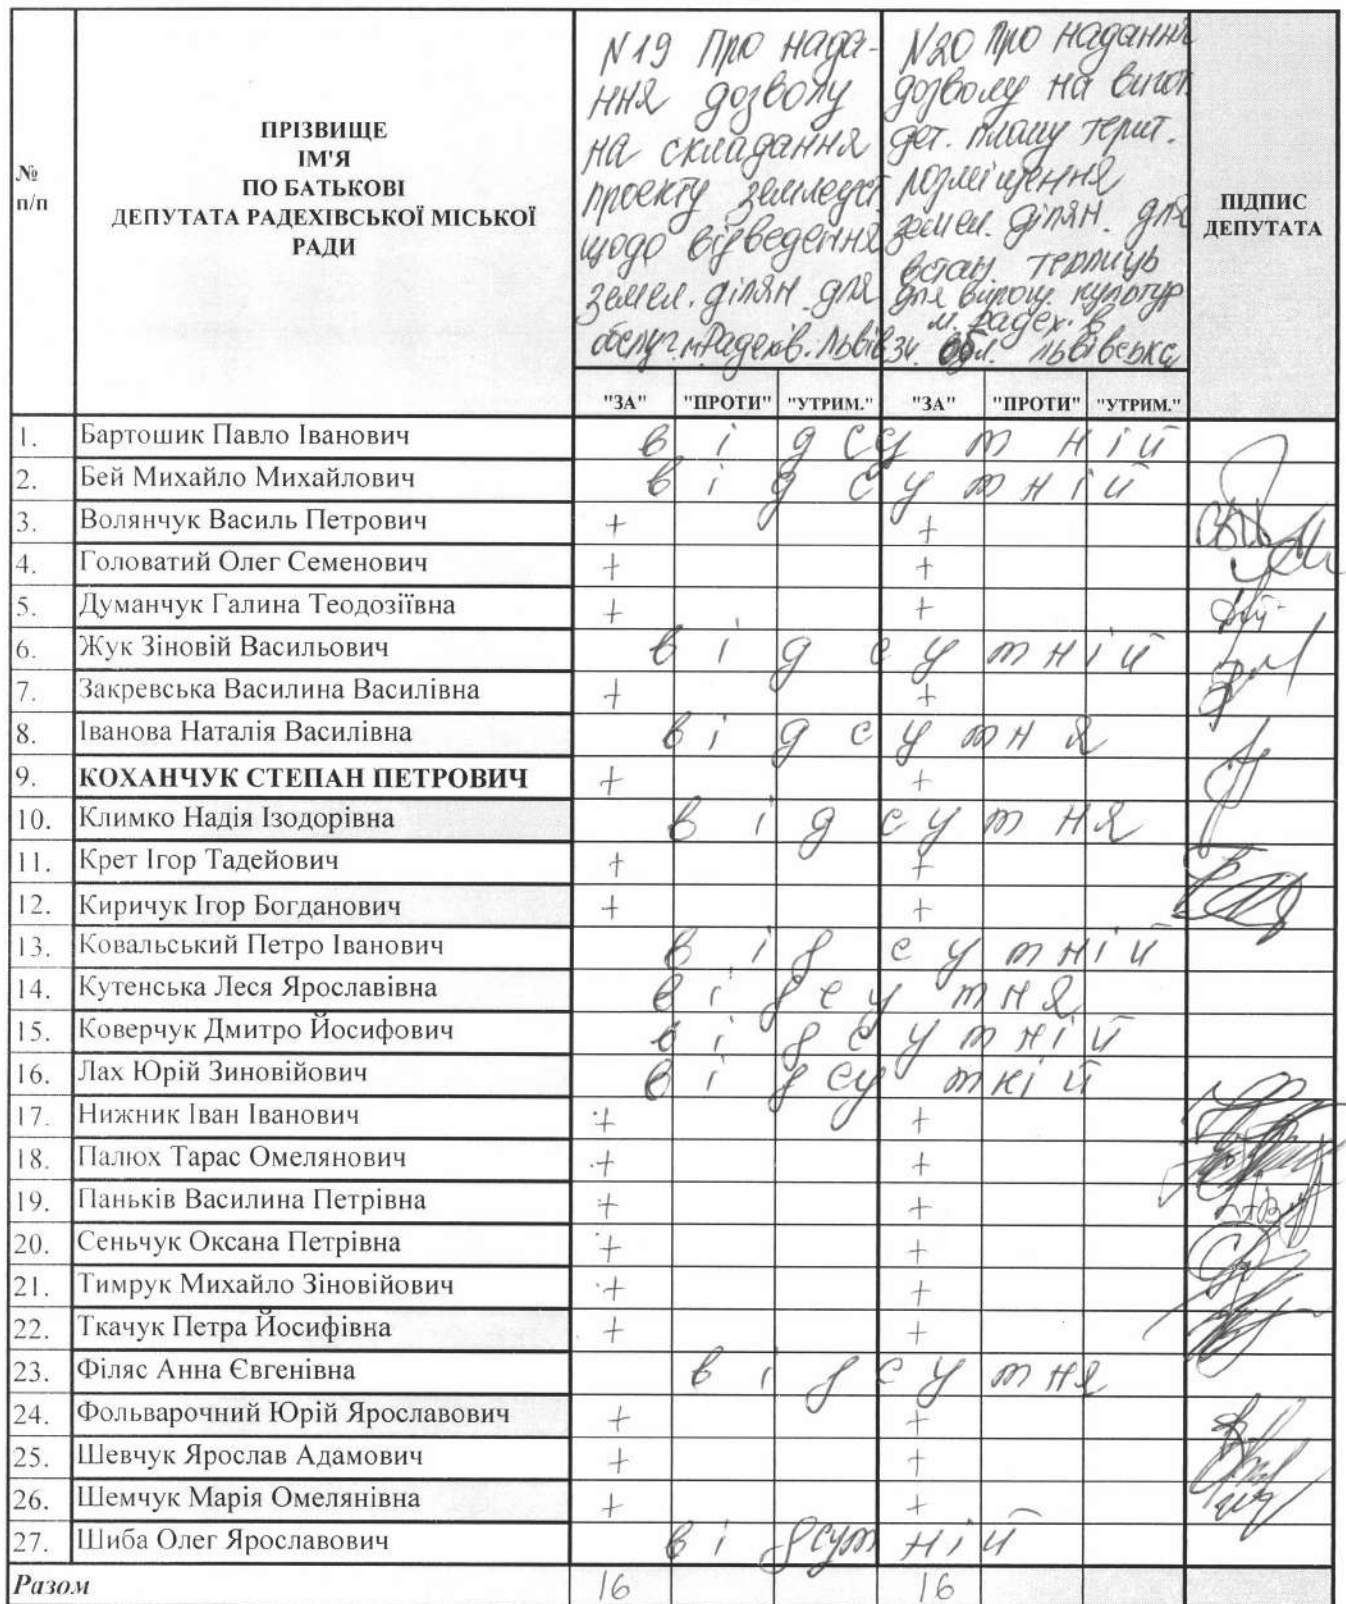 №
п/п
ПРІЗВИЩЕ
ІМ'Я
ПО БАТЬКОВІ
ДЕПУТАТА РАДЕХІВСЬКОЇ МІСЬКОЇ
РАДИ
N19 Про нада-
ння дозволу
на складання
проекту землеуст.
щодо відведення
земел. ділян для
обслуг. м. Радехів. Львів
N20 Про надання
дозволу на вигот.
дет. плану терит.
розміщення
земел. ділян. для
встан. теплиць
для вирощ. культур
м. Радех. в
обл. львівська
ПІДПИС
ДЕПУТАТА
"ЗА" "ПРОТИ" "УТРИМ." "ЗА" "ПРОТИ" "УТРИМ."
1. Бартошик Павло Іванович відсутній
2. Бей Михайло Михайлович відсутній
3. Волянчук Василь Петрович + +
4. Головатий Олег Семенович + +
5. Думанчук Галина Теодозіївна + +
6. Жук Зіновій Васильович відсутній
7. Закревська Василина Василівна + +
8. Іванова Наталія Василівна відсутня
9. КОХАНЧУК СТЕПАН ПЕТРОВИЧ + +
10. Климко Надія Ізодорівна відсутня
11. Крет Ігор Тадейович + +
12. Киричук Ігор Богданович + +
13. Ковальський Петро Іванович відсутній
14. Кутенська Леся Ярославівна відсутня
15. Коверчук Дмитро Йосифович відсутній
16. Лах Юрій Зиновійович відсутній
17. Нижник Іван Іванович + +
18. Палюх Тарас Омелянович + +
19. Паньків Василина Петрівна + +
20. Сеньчук Оксана Петрівна + +
21. Тимрук Михайло Зіновійович + +
22. Ткачук Петра Йосифівна + +
23. Філяс Анна Євгенівна відсутня
24. Фольварочний Юрій Ярославович + +
25. Шевчук Ярослав Адамович + +
26. Шемчук Марія Омелянівна + +
27. Шиба Олег Ярославович відсутній
Разом 16 16